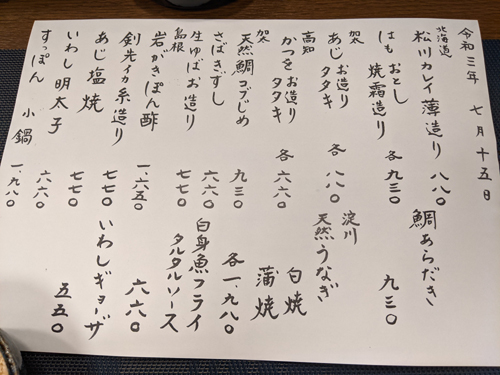 令和三年 七月十五日
北海道
松川カレイ 薄造り 八八〇
はも おとし
焼霜造り 各 九三〇
加太
あじ お造り
タタキ 各 八八〇
高知
かつを お造り
タタキ 各 六六〇
加太
天然鯛コブじめ 九三〇
さばきずし 六六〇
生ゆばお造り 七七〇
島根
岩がきぽん酢 一、六五〇
剣先イカ糸造り
あじ塩焼 七七〇
いわし明太子 七七〇
すっぽん 小鍋 一、九八〇
六六〇
鯛あらだき 九三〇
淀川
天然うなぎ 白焼
蒲焼 各一、九八〇
白身魚フライ
タルタルソース 六六〇
いわしギョーザ 五五〇